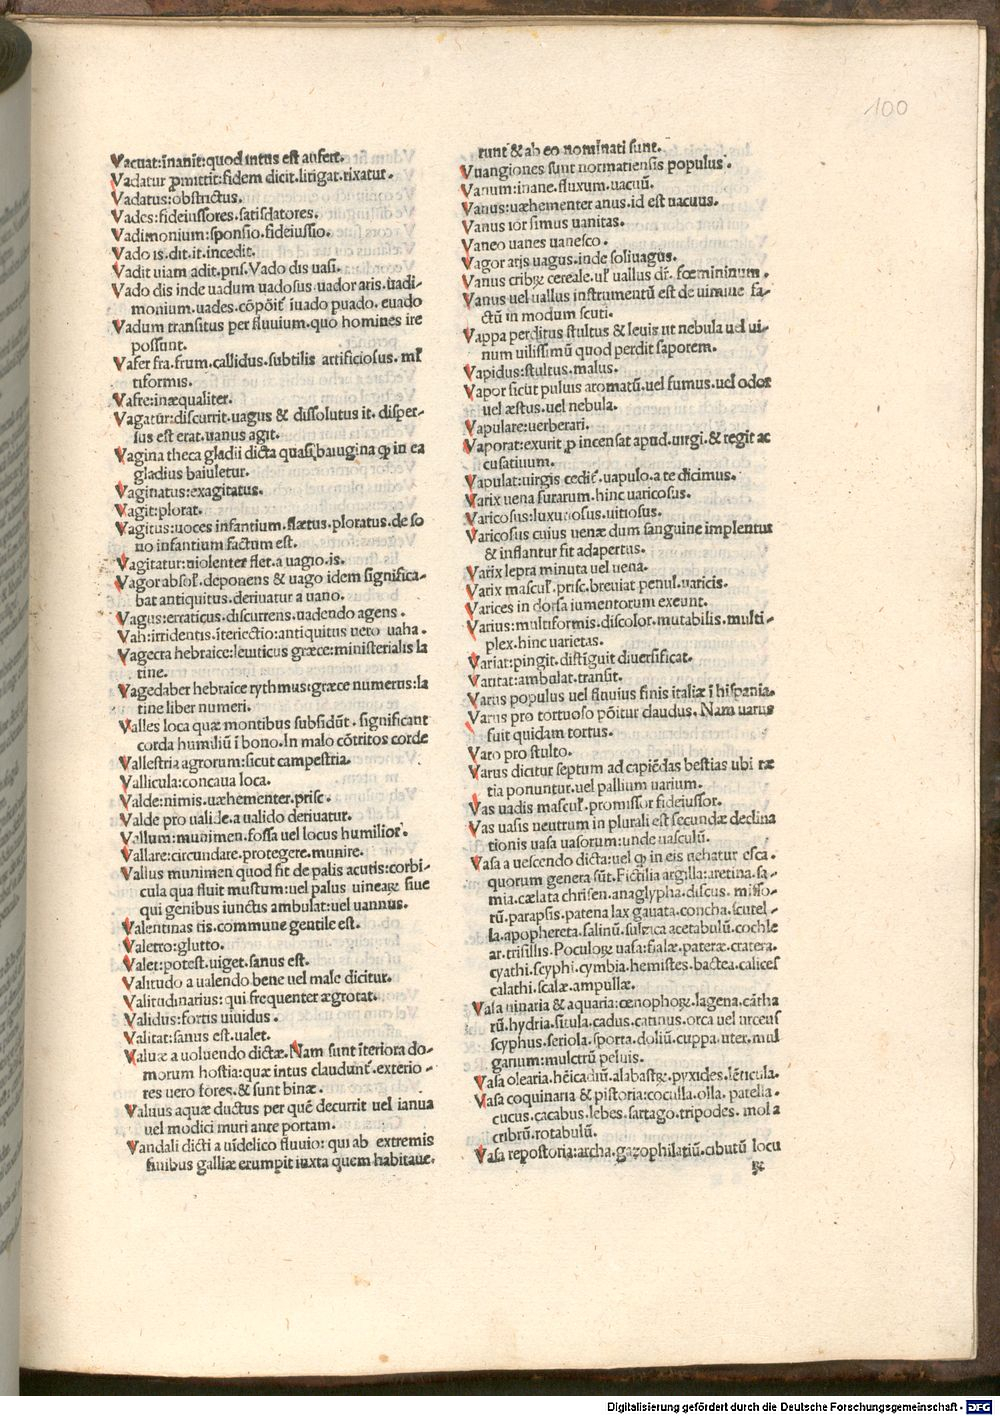 100
Vacuat:īnanit:quod intus est aufert.
Vadatur ꝓmittit:fidem dicit.litigat.rixatur.
Vadatus:obstrictus.
Vades:fideiussores.satisdatores.
Vadimonium:sponsio.fideiussio.
Vado is.dit.it.incedit.
Vadit uiam adit.pris.Vado dis uasi.
Vado dis inde uadum uadosus.uador aris.uadi-
monium.uades.cōpōit̄ iuado puado.euado
Vadum transitus per fluuium.quo homines ire
possunt.
Vafer fra.frum.callidus.subtilis artificiosus.ml̄
tiformis.
Vafre:inæqualiter.
Vagatur:discurrit.uagus & dissolutus it. disper-
sus est erat.uanus agit.
Vagina theca gladii dicta quasi baiugina qꝫ in ea
gladius baiuletur.
Vaginatus:exagitatus.
Vagit:plorat.
Vagitus:uoces infantium.flætus.ploratus.de so
no infantium factum est.
Vagitatur:uiolenter flet.a uagio.is.
Vagor absol̄.deponens & uago idem significa-
bat antiquitus.deriuatur a uano.
Vagus:erraticus.discurrens.uadendo agens.
Vah:irridentis.īteriectio:antiquitus uero uaha.
Vagecra hebraice:leuiticus græce:ministerialis la
tine.
Vagedaber hebraice rythmus:græce numerus:la
tine liber numeri.
Valles loca quæ montibus subsidūt. significant
corda humiliū ī bono.In malo cōtritos corde
Vallestria agrorum:sicut campestria.
Vallicula:concaua loca.
Valde:nimis.uæhementer.prisc.
Valde pro ualide.a ualido deriuatur.
Vallum:munimen.fossa uel locus humilior.
Vallare:circundare.protegere.munire.
Vallus munimen quod fit de palis acutis:corbi-
cula qua fluit mustum:uel palus uineaꝝ siue
qui genibus iunctus ambulat:uel uannus.
Valentinas tis.commune gentile est.
Valetro:glutto.
Valet:potest.uiget.sanus est.
Valitudo a ualendo bene uel male dicitur.
Valitudinarius:qui frequenter ægrotat.
Validus:fortis uiuidus.
Valitat:sanus est.ualet.
Valuæ a uoluendo dictæ. Nam sunt īteriora do-
morum hostia:quæ intus claudunt̄.exterio-
res uero fores.& sunt binæ.
Valuus aquæ ductus per quē decurrit uel ianua
uel modici muri ante portam.
Vandali dicti a uīdelico fluuio:qui ab extremis
finibus galliæ erumpit iuxta quem habitaue-
runt & ab eo nominati sunt.
Vuangiones sunt normatiensis populus.
Vanum:inane.fluxum.uacuū.
Vanus:uæhementer anus.id est uacuus.
Vanus ior simus uanitas.
Vaneo uanes uanesco.
Vagor aris uagus.inde soliuagus.
Vanus cribꝝ cereale.ul̄ uallus dr̄. fœmininum.
Vanus uel uallus instrumentū est de uimine fa-
ctū in modum scuti.
Vappa perditus stultus & leuis ut nebula uel ui-
num uilissimū quod perdit saporem.
Vapidus:stultus.malus.
Vapor sicut puluis aromatū.uel fumus.uel odor
uel æstus.uel nebula.
Vapulare:uerberari.
Vaporat:exurit ꝓ incensat apud.uirgi.& regit ac
cusatiuum.
Vapulat:uirgis cedit̄.uapulo.a te dicimus.
Varix uena surarum.hinc uaricosus.
Varicosus:luxuriosus.uitiosus.
Varicosus cuius uenæ dum sanguine implentur
& inflantur fit adapertus.
Varix lepra minuta uel uena.
Varix mascul̄.prisc.breuiat penul̄.uaricis.
Varices in dorsa iumentorum exeunt.
Varius:multiformis.discolor.mutabilis.multi-
plex.hinc uarietas.
Variat:pingit.distīguit diuersificat.
Varitat:ambulat.transit.
Varus populus uel fluuius finis italiæ ī hispania.
Varus pro tortuoso pōitur claudus. Nam uarus
fuit quidam tortus.
Varo pro stulto.
Varus dicitur septum ad capiēdas bestias ubi ræ
tia ponuntur.uel pallium uarium.
Vas uadis mascul̄.promissor fideiussor.
Vas uasis neutrum in plurali est secundæ declina
tionis uasa uasorum:unde uasculū.
Vasa a uescendo dicta:uel qꝫ in eis uehatur esca.
quorum genera sūt.Fictilia argilla:aretina.sa-
mia.cælata chrisen.anaglypha.discus. misso-
rū.parapsis.patena lax gauata.concha.scutel-
la.apophereta.salinū.sulzica acetabulū.cochle
ar.trisillis.Poculoꝝ uasa:fialæ.pateræ.cratera.
cyathi.scyphi.cymbia.hemistes.bactea.calices
calathi.scalæ.ampullæ.
Vasa uinaria & aquaria:œnophoꝝ.lagena.cātha
rū.hydria.situla.cadus.catinus.orca uel urceus
scyphus.seriola.sporta.doliū.cuppa.uter.mul
garium:mulctrū peluis.
Vasa olearia.hēicadiū.alabastꝝ.pyxides.lēticula.
Vasa coquinaria & pistoria:coculla.olla. patella.
cucus.cacabus.lebes.sartago.tripodes. mola
cribrū.rotabulū.
Vasa repostoria:archa.gazophilatiū.cibutū locu
Digitalisierung gefördert durch die Deutsche Forschungsgemeinschaft - DFG